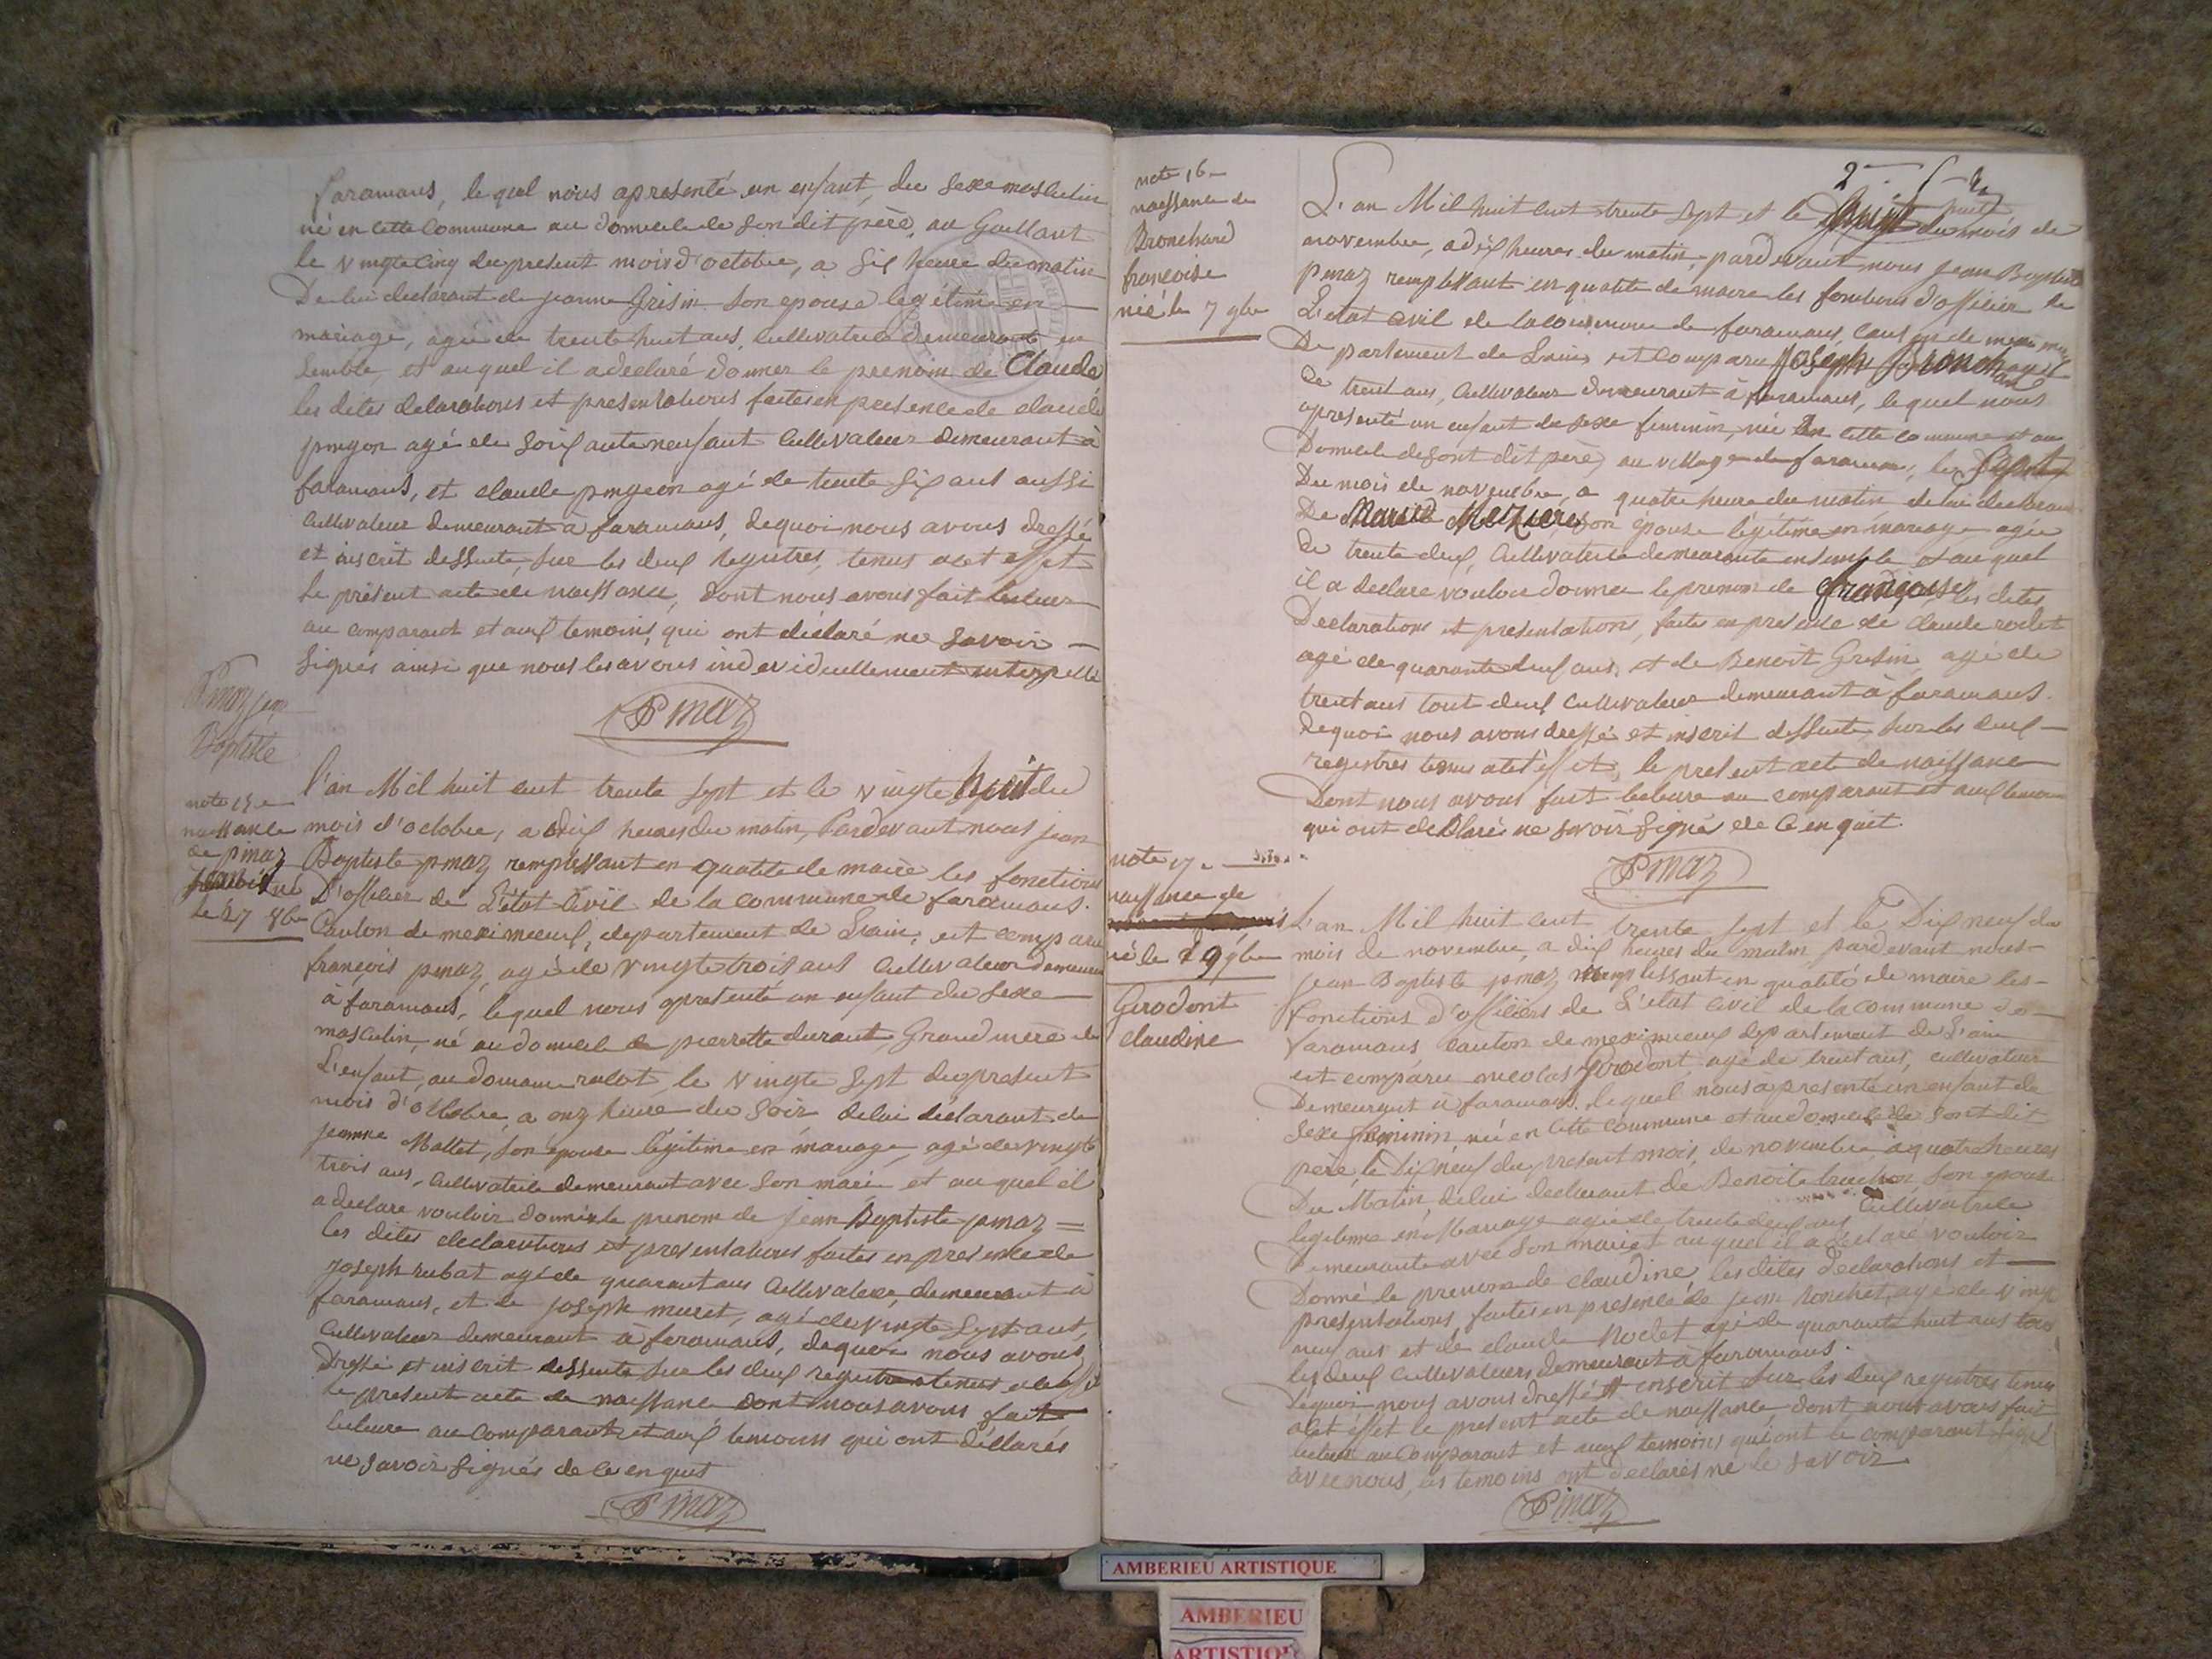 faramans, le quel nous apresenté un enfant, du sexe masculin
né en cette Commune au domicile de son dit père, au Gaillant
le vingte cinq du present mois d'octobre, a six heure du matin
De lui declarant de jeanne Grisin son epouse legitime en
mariage, agée de trente huit ans, Cultivatrice demeurant en
semble, et au quel il a declaré donner le prenom de Claude
les dites delarations et presentations faites en presence de claude
pingon agé de soixante neuf ant Cultivateur demeurant à
faramans, et claude pingeon agé de trente six ans aussi
Cultivateur demeurant à faramans, dequoi nous avons dressé
et inscrit dessuite, sur les deux registres, tenus a cet effet
le présent acte de naissance, dont nous avons fait lecture
au comparant et aux temoins, qui ont déclaré ne savoir
signés ainsi que nous les avons individuellement interpellé
Pmaz
Pmaz jean
Baptiste
note 15e
naissance
de pmaz
né
le 27 8bre
l'an Mil huit cent trente sept et le vingte huit du
mois d'octobre, a dix heures du matin, Pardevant nous jean
Baptiste pmaz remplissant en qualité de maire les fonctions
D'officier de L'état Civil de la commune de faramans.
Canton de meximieux, departement de L'ain, est comparu
françois pmaz, agé de vingte trois ans Cultivateur demeurant
à faramans, lequel nous apresenté un enfant du sexe
masculin, né au domicile de pierrette durant, Grand mere de
L'enfant, au domaine rulot, le vingte sept du present
mois d'octobre, a onz heure du soir de lui déclarant de
jeanne Mallet, son epouse légitime en mariage, agé de vingte
trois ans, Cultivatrice demeurant avec son mari et au quel il
a declare vouloir donner le prenom de jean Baptiste pmaz =
les dites declarations et presentations faites en presence de
joseph rubat agé de quarant ans Cultivateur, demeurant à
faramans, et de joseph muret, agé de vingte sept ant,
Cultivateur demeurant à faramans, dequoi nous avons
Dressé et inscrit dessuite sur les deux registres tenus a cet effet
le present acte de naissance dont nous avons fait
lecture au Comparant et aux temoins qui ont déclarés
ne savoir signés de ce enquit
Pmaz
2
note 16
naissance de
Bronchard
françoise
née le 7 9bre
L'an Mil huit cent trente sept et le huit du mois de
novembre, a dix heures du matin, pardevant nous jean Baptiste
pmaz remplissant en qualité de maire les fonctions d'officier de
L'etat civil de la commune de faramans, canton de meximieux
Departement de L'ain, est comparu joseph Bronchard agé
De trent ans, Cultivateur demeurant à faramans, lequel nous
apresenté un enfant de sexe feminin, née En cette commune et au
Domicile de sont dit père, au village de faramans, le Sept
Du mois de novembre, a quatre heure du matin de lui declarant
De Marie Mezziere son épouse légitime en mariage agée
De trente deux, Cultivatrice demeurante ensemble et au quel
il a declare vouloir donner le prenom de françoise les dites
Declarations et presentations, faites en presence de claude rodet
agé de quarante deux ans, et de Benoit Grisin agé de
trent ans tout deux Cultivateurs demeurant à faramans.
dequoi nous avons dressé et inscrit dessuite sur les deux
registres tenus a cet effet, le present acte de naissance
Dont nous avons fait lecture au comparant et aux temoins
qui ont déclaré ne savoir signés de ce enquit.
Pmaz
note 17
naissance de
né le 19 9bre
Girodont
claudine
L'an Mil huit cent trente sept et le Dix neuf du
mois de novembre, a dix heures du matin pardevant nous
jean Baptiste pmaz remplissant en qualité de maire les
fonctions d'officiers de L'etat Civil de la commune de
faramans canton de meximieux departement de L'ain
est comparu nicolas Girodont, agé de trent ans, cultivateur
Demeurant à faramans, lequel nous apresenté un enfant de
sexe feminin né en cette commune et au domicile de sont dit
père, le dix neuf du present mois de novembre, à quatre heures
Du Matin, de lui declarant de Benoite truchon Son epouse
légitime en Mariage agée de trente deux ans Cultivatrice
Demeurante avec son mari et au quel il a declaré vouloir
Donné le prenom de claudine, les dites declarations et
presentations, faites en presence de jean ronchet, agé de vingt
neuf ans et de claude Rodet agé de quarante huit ans tous
les deux Cultivateurs demeurant à faramans.
Dequoi nous avons dressé et inscrit sur les deux registres tenus
a cet effet le present acte de naissance, dont nous avons fait
lecture au Comparant et aux temoins qui ont le comparant signé
avec nous, les temoins ont déclarés ne le savoir
Pmaz
AMBERIEU ARTISTIQUE
AMBERIEU
ARTISTIQU